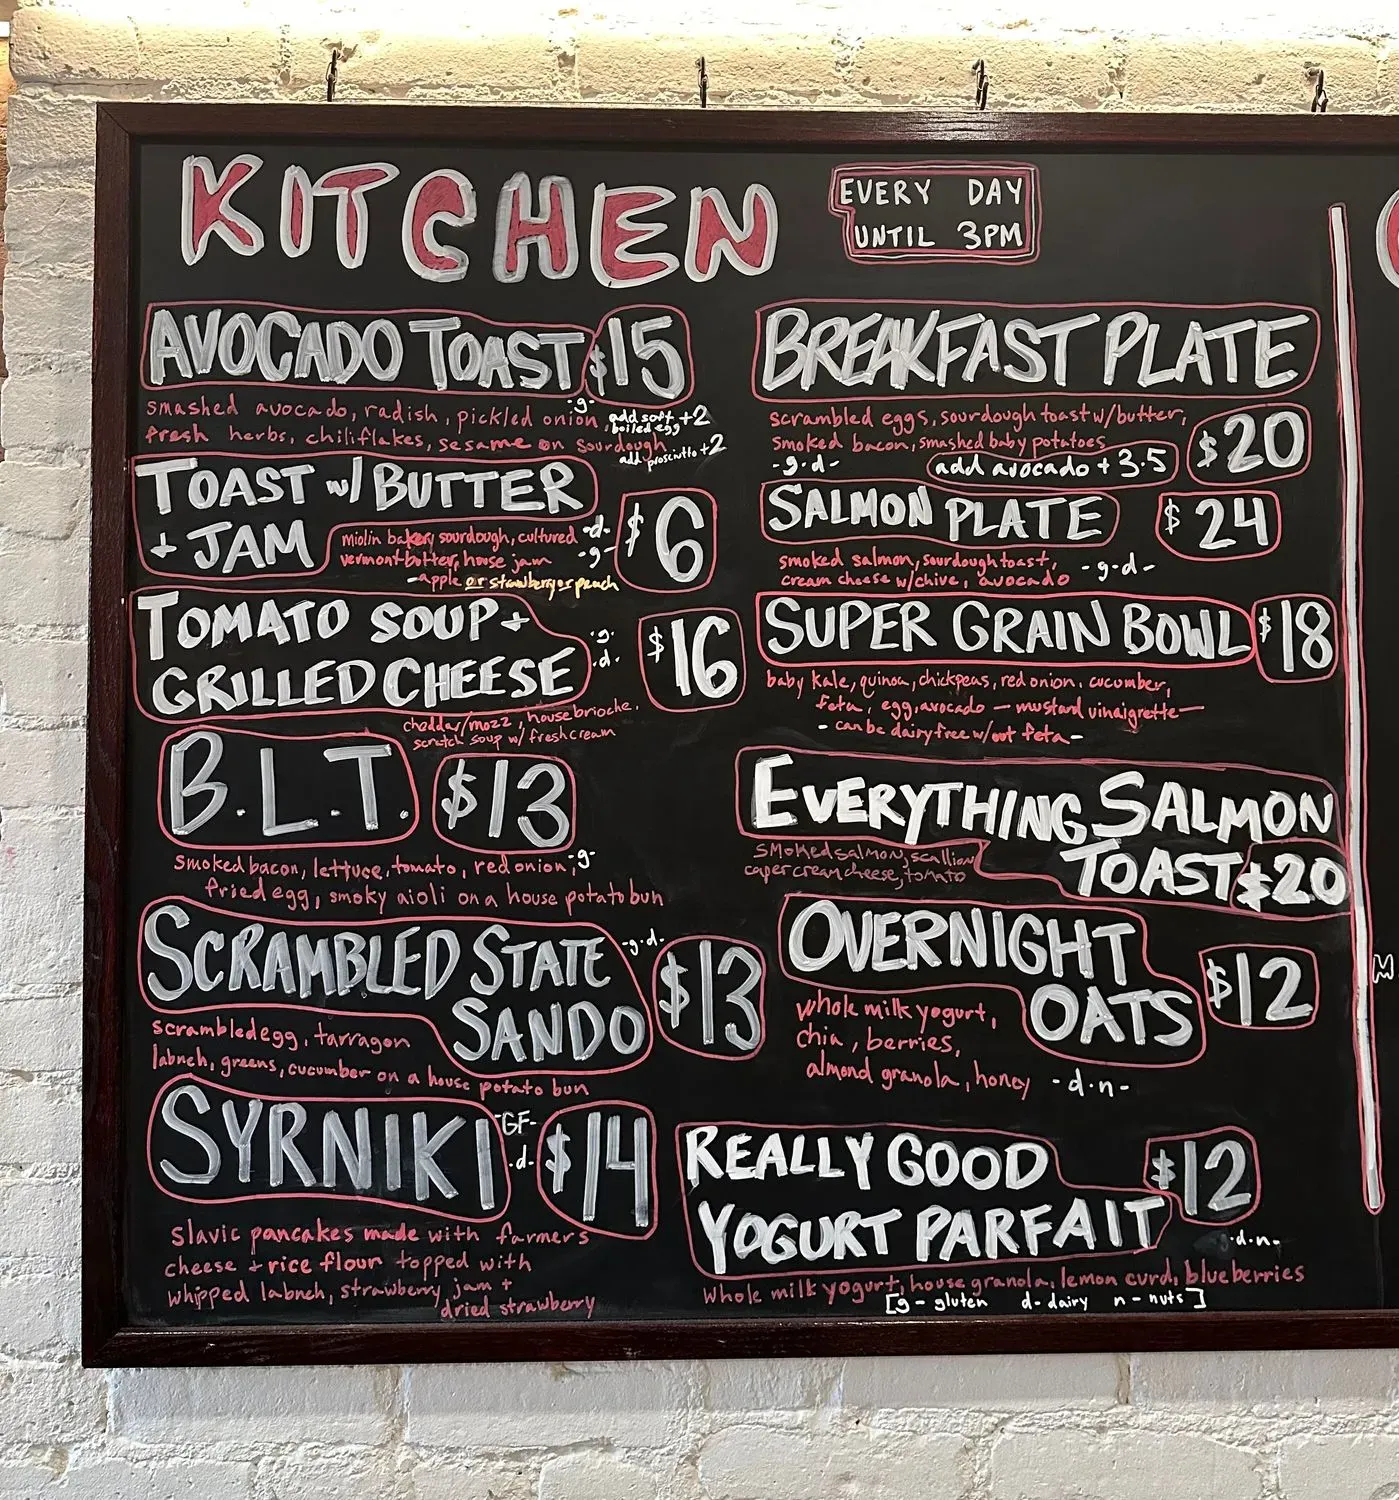 KITCHEN
EVERY DAY
UNTIL 3PM
AVOCADO TOAST $15
smashed avocado, radish, pickled onion, -g-
fresh herbs, chiliflakes, sesame on sourdough
add soft boiled egg +2
add prosciutto +2
TOAST w/ BUTTER
+ JAM $6
miolin bakery sourdough, cultured -d-
vermont butter, house jam -g-
-apple or strawberry or peach
TOMATO SOUP +
GRILLED CHEESE $16
-g-
-d-
cheddar/mozz, house brioche,
scratch soup w/ fresh cream
B.L.T. $13
smoked bacon, lettuce, tomato, red onion, -g-
fried egg, smoky aioli on a house potato bun
SCRAMBLED STATE
SANDO $13
-g-d-
scrambled egg, tarragon
labneh, greens, cucumber on a house potato bun
SYRNIKI $14
-GF-
-d-
slavic pancakes made with farmers
cheese + rice flour topped with
whipped labneh, strawberry jam +
dried strawberry
BREAKFAST PLATE
$20
scrambled eggs, sourdough toast w/butter,
smoked bacon, smashed baby potatoes
-g-d-
add avocado + 3.5
SALMON PLATE $24
smoked salmon, sourdough toast,
cream cheese w/chive, avocado -g-d-
SUPER GRAIN BOWL $18
baby kale, quinoa, chickpeas, red onion, cucumber,
feta, egg, avocado — mustard vinaigrette—
- can be dairy free w/out feta -
EVERYTHING SALMON
TOAST $20
smoked salmon, scallion
caper cream cheese, tomato
OVERNIGHT
OATS $12
whole milk yogurt,
chia, berries,
almond granola, honey -d-n-
REALLY GOOD
YOGURT PARFAIT $12
-d-n-
whole milk yogurt, house granola, lemon curd, blueberries
[g - gluten d- dairy n - nuts]